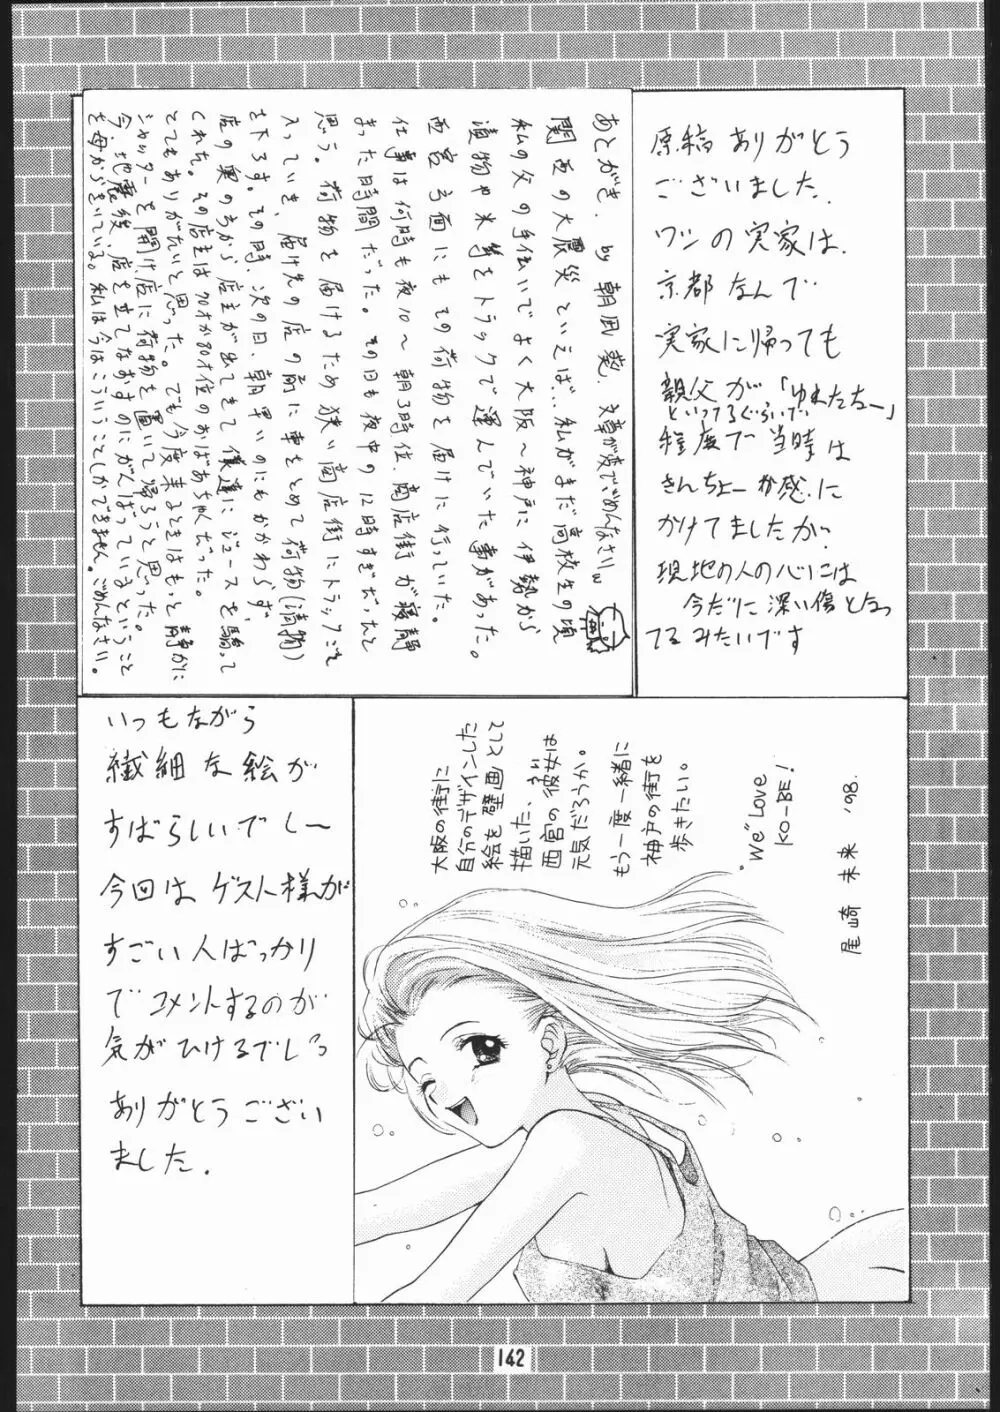 あとがき. by 朝凪 葵. 文章が変でごめんなさいw
関西の大震災といえば…私がまだ高校生の頃
私の父の手伝いでよく大阪〜神戸に伊勢から
漬物や米等をトラックで運んでいた事があった。
西宮方面にもその荷物を届けに行っていた。
仕事は何時も夜10〜朝3時位、商店街が寝静
まった時間だった。その日も夜中の12時すぎだったと
思う。荷物を届けるため狭い商店街にトラックごと
入っていき、届け先の店の前に車をとめて荷物(漬物)
を下ろす。その時、次の日、朝早いのにもかかわらず、
店の奥の方から店主が出てきて僕達にジュースを騙って
くれた。その店主は70才か80才位のおばあちゃんだった。
とてもありがたいと思った。でも今度来るときはもっと静かに
シャッターを開け店に荷物を置いて帰ろうと思った。
今、地震後、店を立てなおすのにがんばっているということ
を母からきいている。私は今はこういうことしかできません。ごめんなさい。
原稿ありがとう
ございました.
ワシの実家は、
京都なんで
実家に帰っても
親父が「ゆれたたー」
といってるぐらいで
程度で当時は
きんちょー感に
かけてましたが、
現地の人の心には
今だに深い傷となっ
てるみたいです
いつもながら
繊細な絵が
すばらしいでしー
今回はゲスト様が
すごい人ばっかり
でコメントするのが
気がひけるでしっ
ありがとうござい
ました.
大阪の街に
自分のデザインした
絵を壁画として
描いた、
西宮の彼女は
元気だろうか。
もう一度一緒に
神戸の街を
歩きたい。
"We" Love
KO-BE!
尾崎 未来 '98.
142